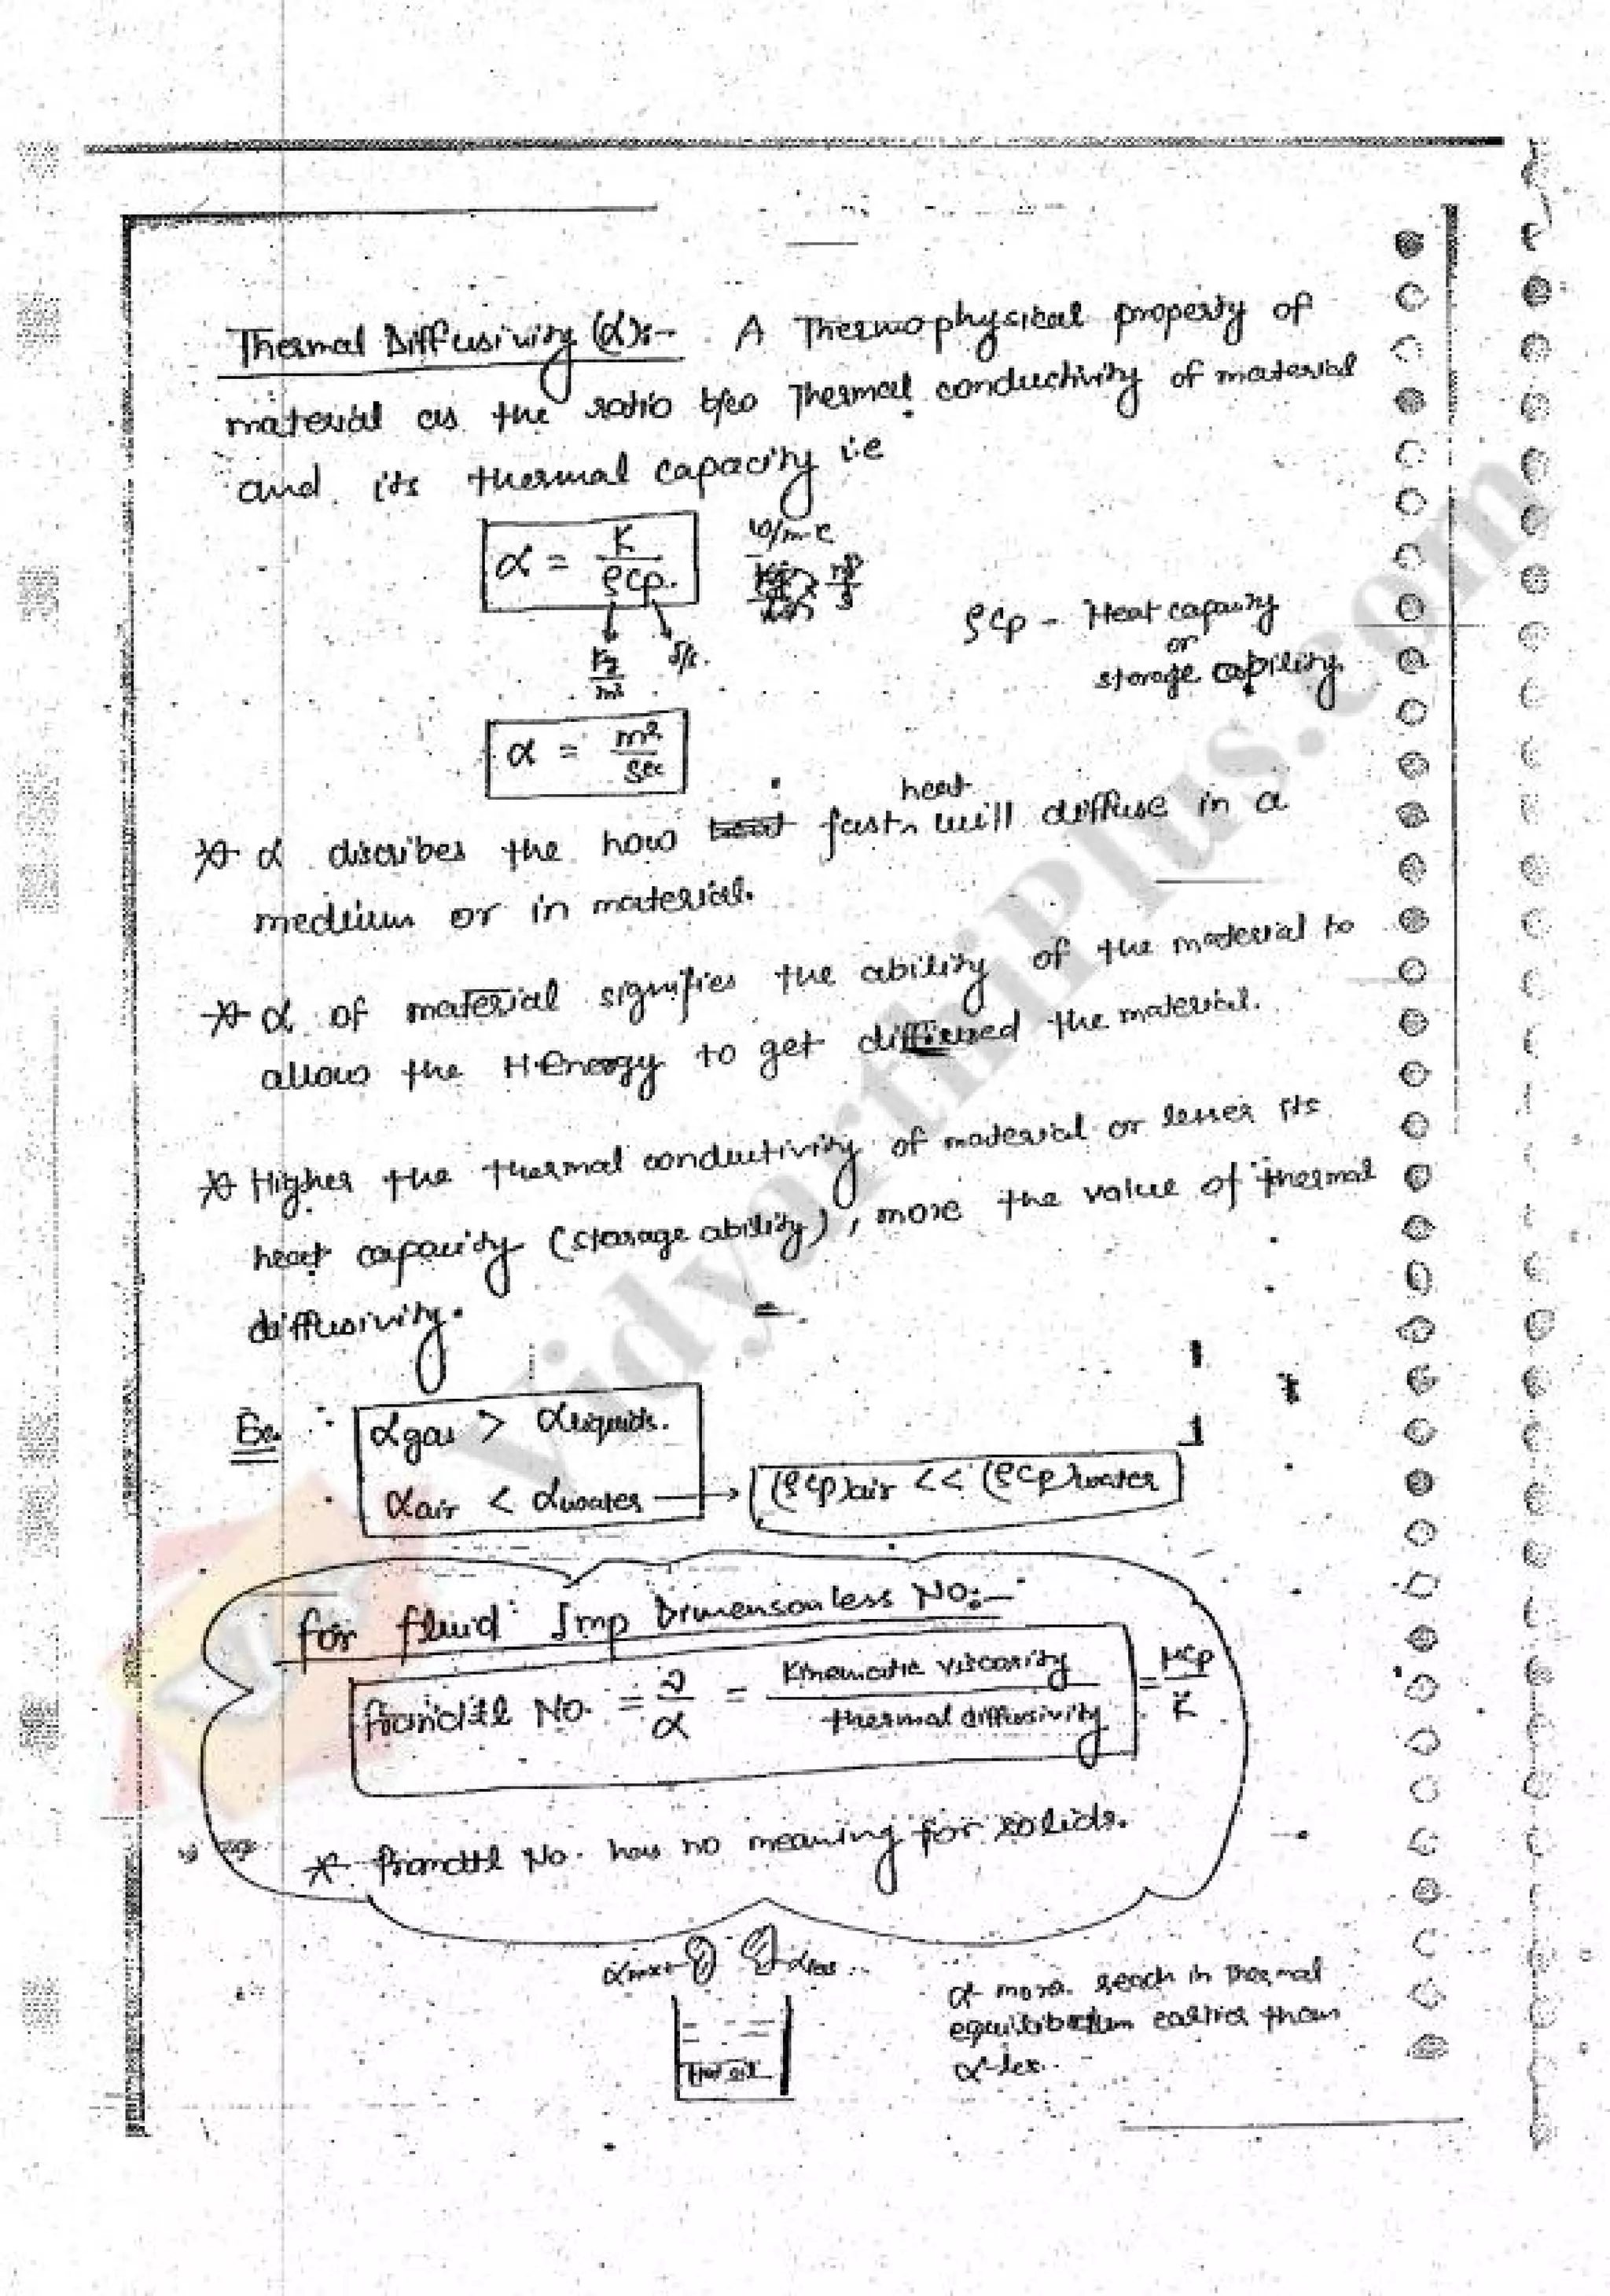 Thermal Diffusivity (α):- A Thermophysical property of
material as the ratio b/w Thermal conductivity of material
and its thermal capacity i.e
α = K / ρCp.
w/m-k
m² / s
Kg / m³
ρCp - Heat capacity
or
storage capility.
α = m² / sec
heat
* α discribes the how fast^ will diffuse in a
medium or in material.
* α of material signifies the ability of the material to
allow the H.Energy to get diffused the material.
* Higher the thermal conductivity of material or lesser its
heat capacity (storage ability), more the value of thermal
diffusivity.
Ex. : αgas > αliquids.
αair < αwater → (ρCp)air << (ρCp)water
for fluid: Imp Dimensonless No:-
Prandtl No. = ν / α = Kinematic viscosity / thermal diffusivity = μCp / K
* Prandtl No. has no meaning for solids.
α more reach in thermal
equilibrium earlier than
α-les..
Hot oil
VidyarthiPlus.com